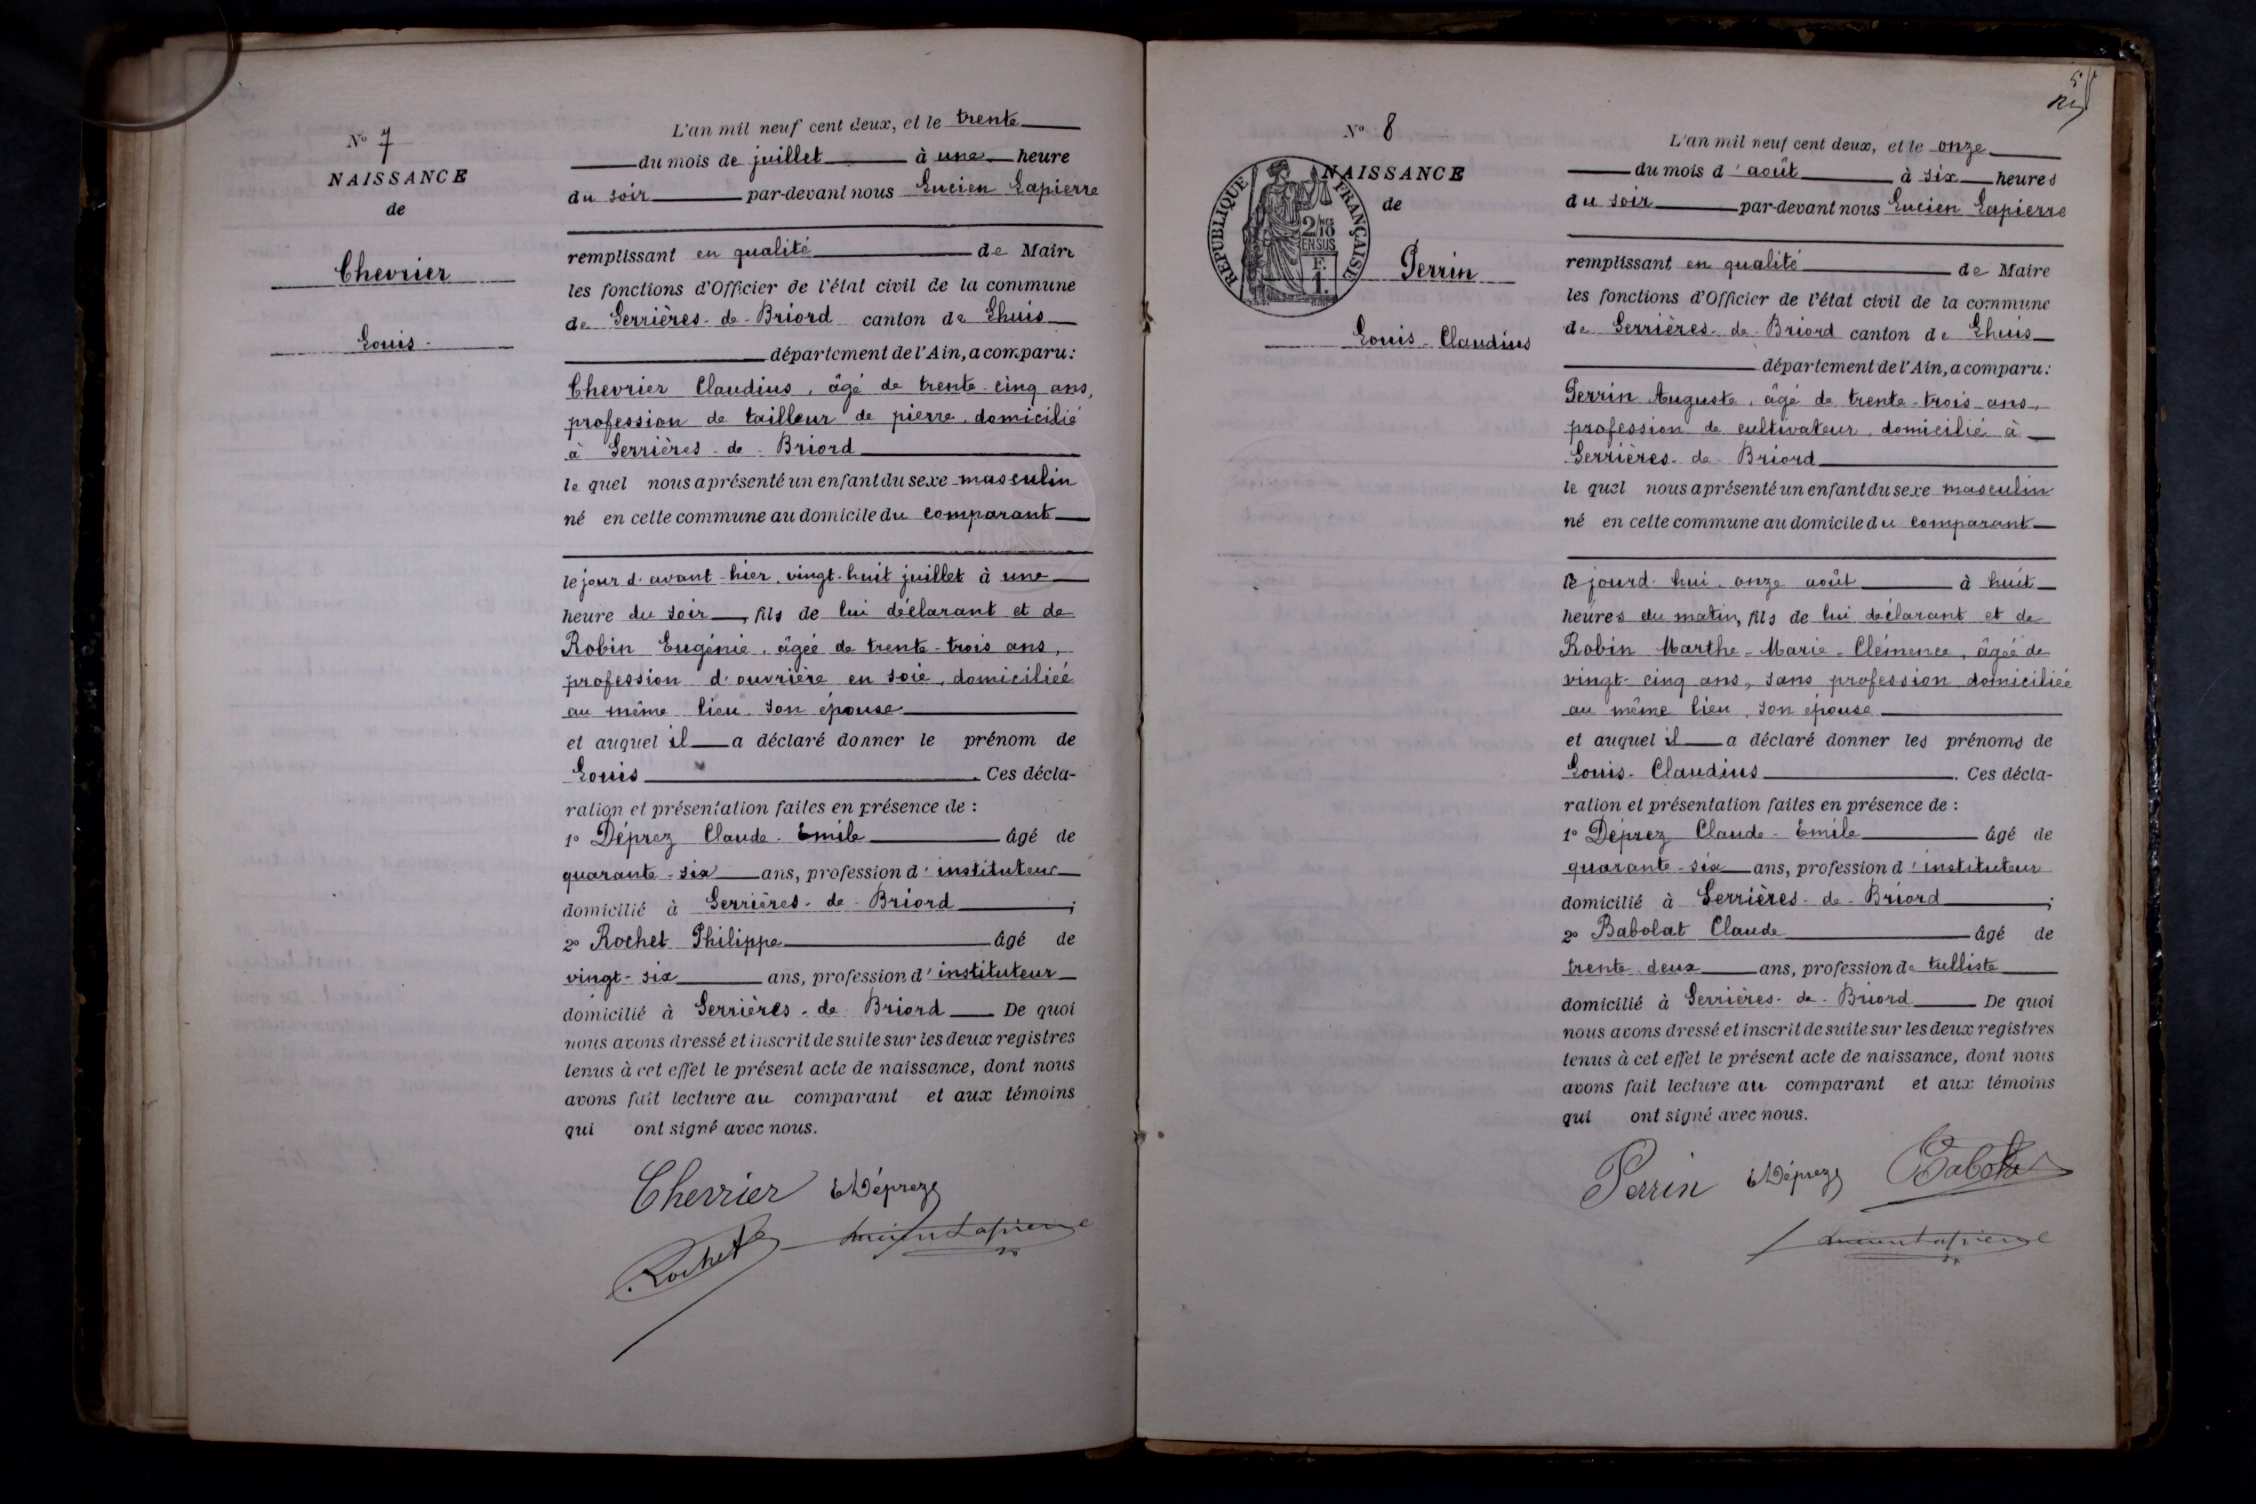 Nº 7
NAISSANCE
de
Chevrier
Louis
L'an mil neuf cent deux, et le trente
du mois de juillet à une heure
du soir par-devant nous Lucien Lapierre
remplissant en qualité de Maire
les fonctions d'Officier de l'état civil de la commune
de Serrières-de-Briord canton de Lhuis
département de l'Ain, a comparu:
Chevrier Claudius, âgé de trente-cinq ans,
profession de tailleur de pierre, domicilié
à Serrières-de-Briord
le quel nous a présenté un enfant du sexe masculin
né en cette commune au domicile du comparant
le jour d'avant-hier, vingt-huit juillet à une
heure du soir, fils de lui déclarant et de
Robin Eugénie, âgée de trente-trois ans,
profession d'ouvrière en soie, domiciliée
au même lieu son épouse
et auquel il a déclaré donner le prénom de
Louis. Ces décla-
ration et présentation faites en présence de :
1º Déprez Claude-Emile âgé de
quarante-six ans, profession d'instituteur
domicilié à Serrières-de-Briord ;
2º Rochet Philippe âgé de
vingt-six ans, profession d'instituteur
domicilié à Serrières-de-Briord De quoi
nous avons dressé et inscrit de suite sur les deux registres
tenus à cet effet le présent acte de naissance, dont nous
avons fait lecture au comparant et aux témoins
qui ont signé avec nous.
Chevrier EDéprez
Rochet Lucien Lapierre
Nº 8
NAISSANCE
de
RÉPUBLIQUE FRANÇAISE
2/10
EN SUS
F.
1.
Perrin
Louis-Claudius
L'an mil neuf cent deux, et le onze
du mois d'août à six heures
du soir par-devant nous Lucien Lapierre
remplissant en qualité de Maire
les fonctions d'Officier de l'état civil de la commune
de Serrières-de-Briord canton de Lhuis
département de l'Ain, a comparu:
Perrin Auguste, âgé de trente-trois ans,
profession de cultivateur, domicilié à
Serrières-de-Briord
le quel nous a présenté un enfant du sexe masculin
né en cette commune au domicile du comparant
le jourd'hui, onze août à huit
heures du matin, fils de lui déclarant et de
Robin Marthe-Marie-Clémence, âgée de
vingt-cinq ans, sans profession domiciliée
au même lieu, son épouse
et auquel il a déclaré donner les prénoms de
Louis-Claudius. Ces décla-
ration et présentation faites en présence de :
1º Déprez Claude-Emile âgé de
quarante-six ans, profession d'instituteur
domicilié à Serrières-de-Briord ;
2º Babolat Claude âgé de
trente deux ans, profession de tulliste
domicilié à Serrières-de-Briord De quoi
nous avons dressé et inscrit de suite sur les deux registres
tenus à cet effet le présent acte de naissance, dont nous
avons fait lecture au comparant et aux témoins
qui ont signé avec nous.
Perrin EDéprez Babolat
Lucien Lapierre